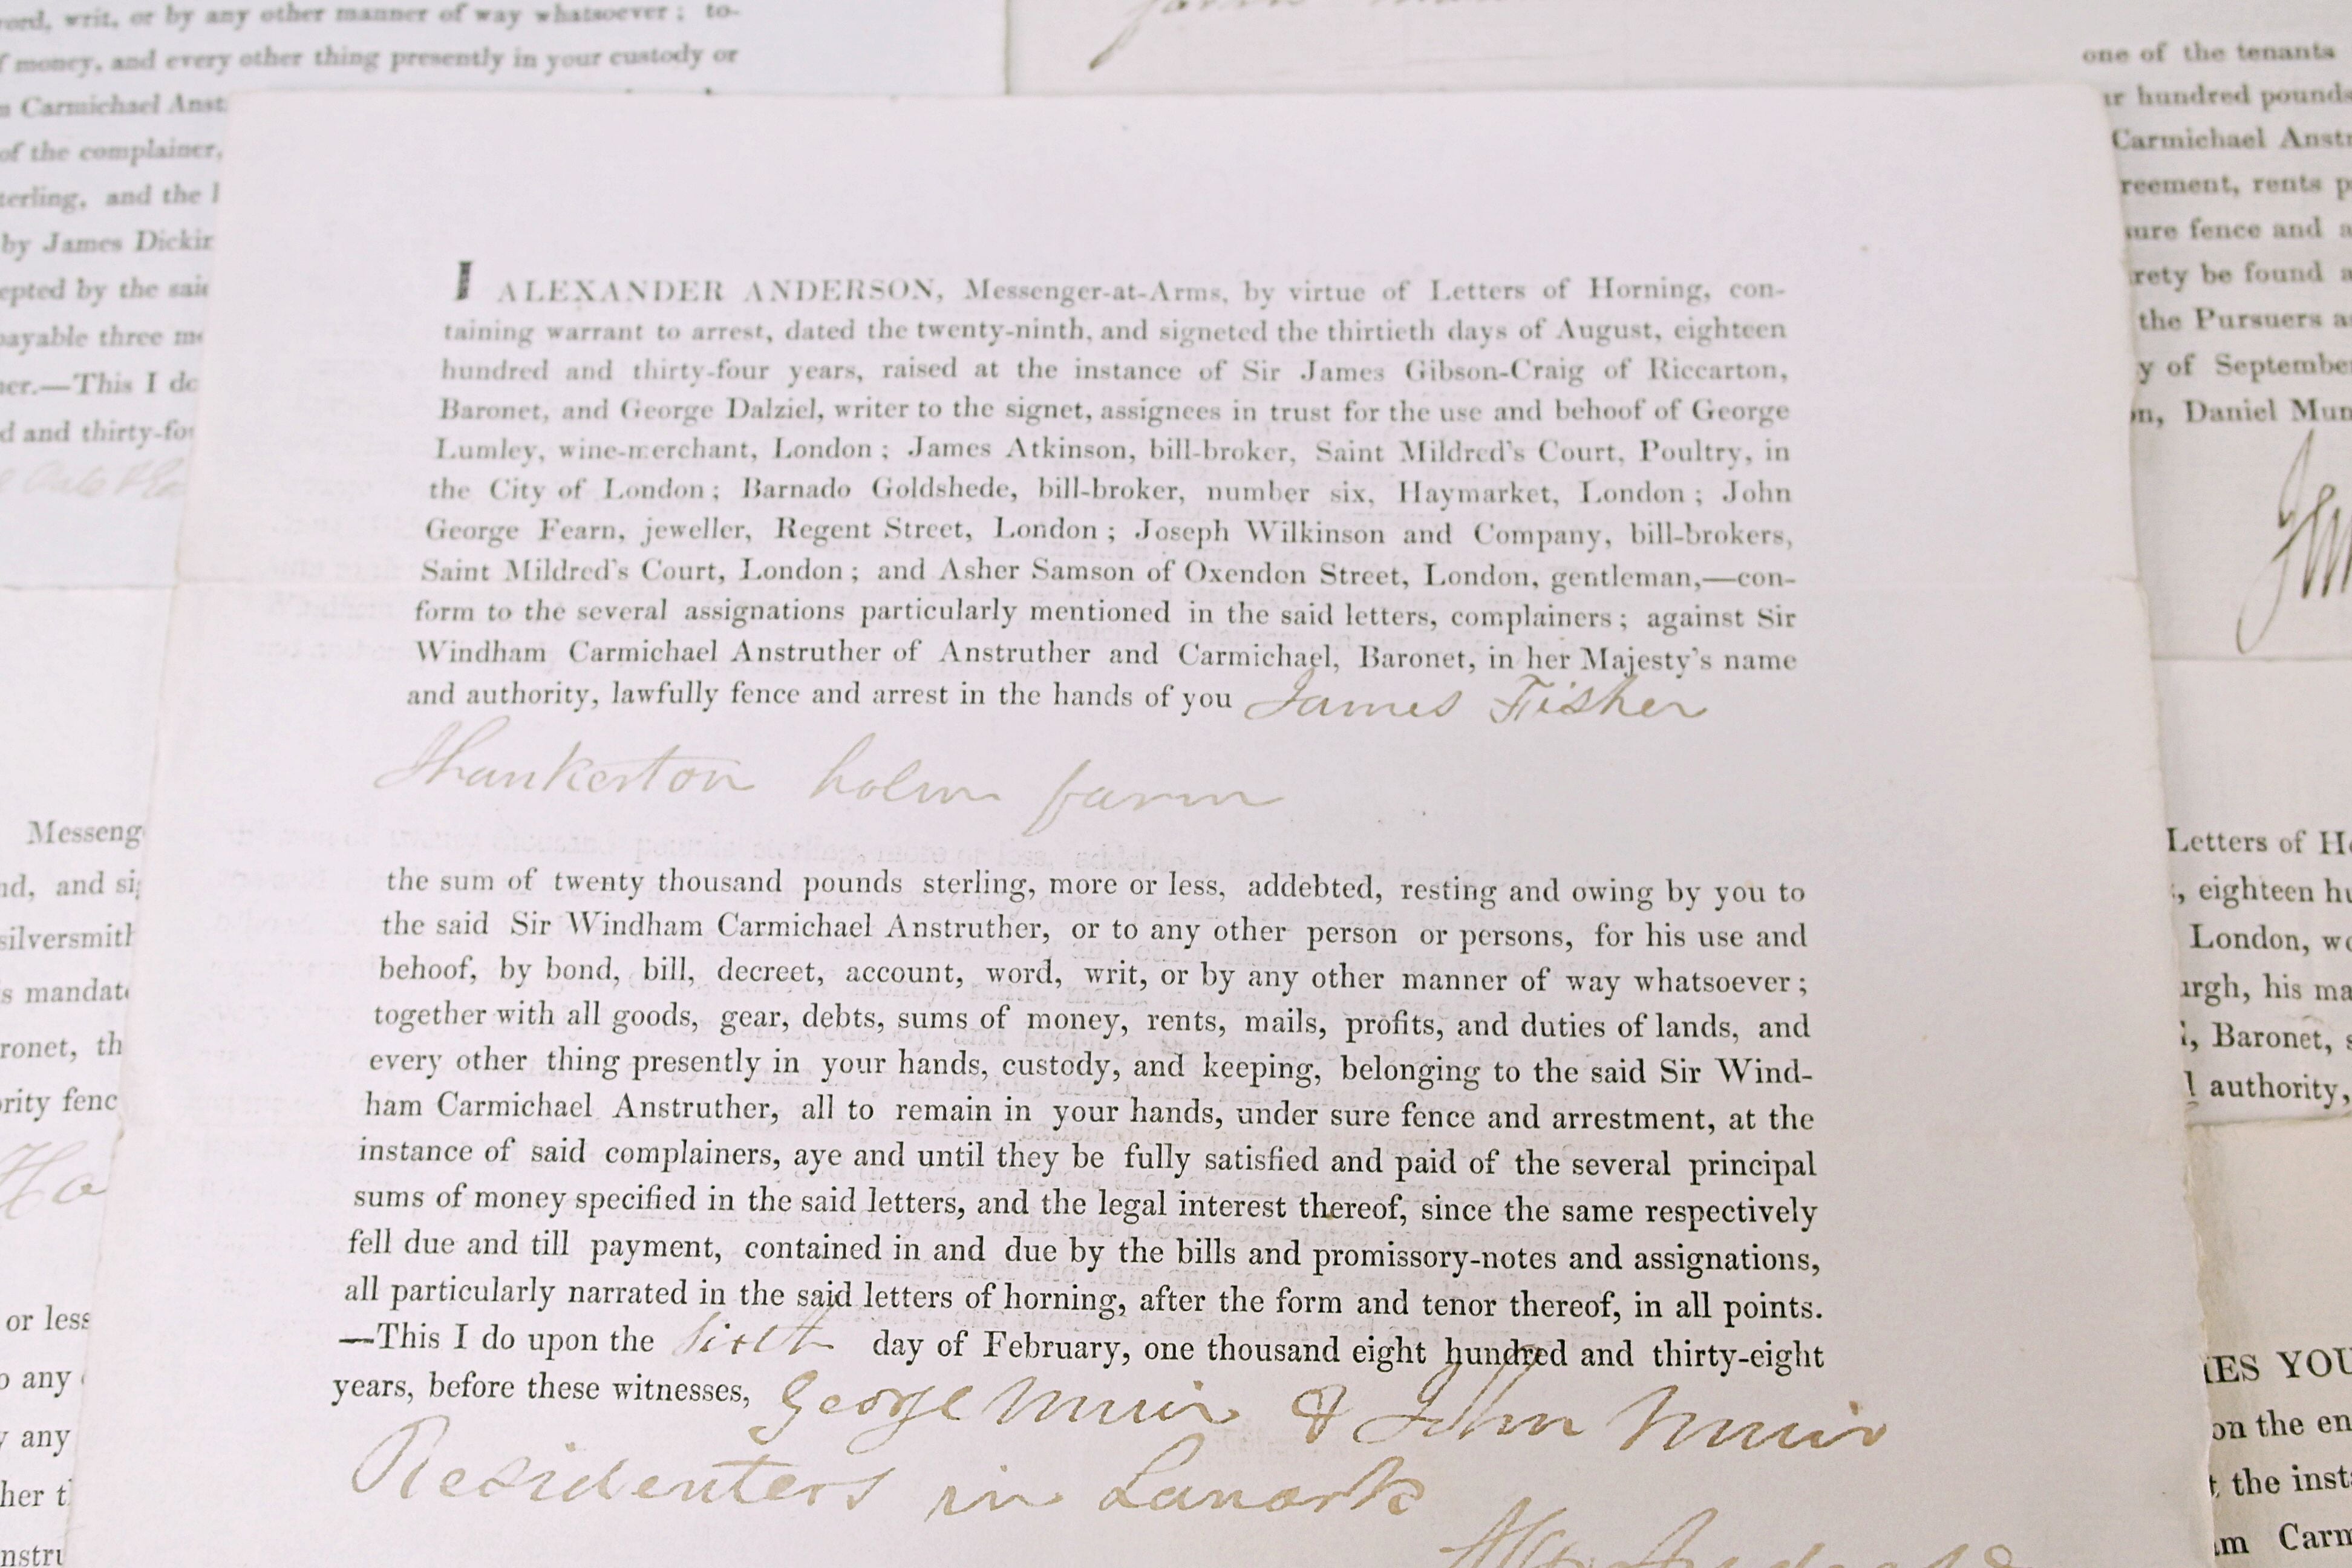 word, writ, or by any other manner of way whatsoever; to-
of money, and every other thing presently in your custody or
Carmichael Anst
of the complainer,
sterling, and the
by James Dickin
cepted by the said
payable three
ner.—This I do
d and thirty-fo
Messeng
nd, and sig
silversmith
s mandat
ronet, th
ority fenc
Ho
or less
o any
y any
her t
nstru
I ALEXANDER ANDERSON, Messenger-at-Arms, by virtue of Letters of Horning, con-
taining warrant to arrest, dated the twenty-ninth, and signeted the thirtieth days of August, eighteen
hundred and thirty-four years, raised at the instance of Sir James Gibson-Craig of Riccarton,
Baronet, and George Dalziel, writer to the signet, assignees in trust for the use and behoof of George
Lumley, wine-merchant, London; James Atkinson, bill-broker, Saint Mildred's Court, Poultry, in
the City of London; Barnado Goldshede, bill-broker, number six, Haymarket, London; John
George Fearn, jeweller, Regent Street, London; Joseph Wilkinson and Company, bill-brokers,
Saint Mildred's Court, London; and Asher Samson of Oxendon Street, London, gentleman,—con-
form to the several assignations particularly mentioned in the said letters, complainers; against Sir
Windham Carmichael Anstruther of Anstruther and Carmichael, Baronet, in her Majesty's name
and authority, lawfully fence and arrest in the hands of you James Fisher
Thankerton holm farm
the sum of twenty thousand pounds sterling, more or less, addebted, resting and owing by you to
the said Sir Windham Carmichael Anstruther, or to any other person or persons, for his use and
behoof, by bond, bill, decreet, account, word, writ, or by any other manner of way whatsoever;
together with all goods, gear, debts, sums of money, rents, mails, profits, and duties of lands, and
every other thing presently in your hands, custody, and keeping, belonging to the said Sir Wind-
ham Carmichael Anstruther, all to remain in your hands, under sure fence and arrestment, at the
instance of said complainers, aye and until they be fully satisfied and paid of the several principal
sums of money specified in the said letters, and the legal interest thereof, since the same respectively
fell due and till payment, contained in and due by the bills and promissory-notes and assignations,
all particularly narrated in the said letters of horning, after the form and tenor thereof, in all points.
—This I do upon the sixth day of February, one thousand eight hundred and thirty-eight
years, before these witnesses, George Muir & John Muir
Residenters in Lanark
one of the tenants
ur hundred pounds
Carmichael Anstr
reement, rents p
sure fence and a
rety be found a
the Pursuers a
y of September
on, Daniel Mun
Letters of Ho
, eighteen hu
London, wo
urgh, his ma
, Baronet, s
authority,
IES YOU
on the en
t the inst
m Carm